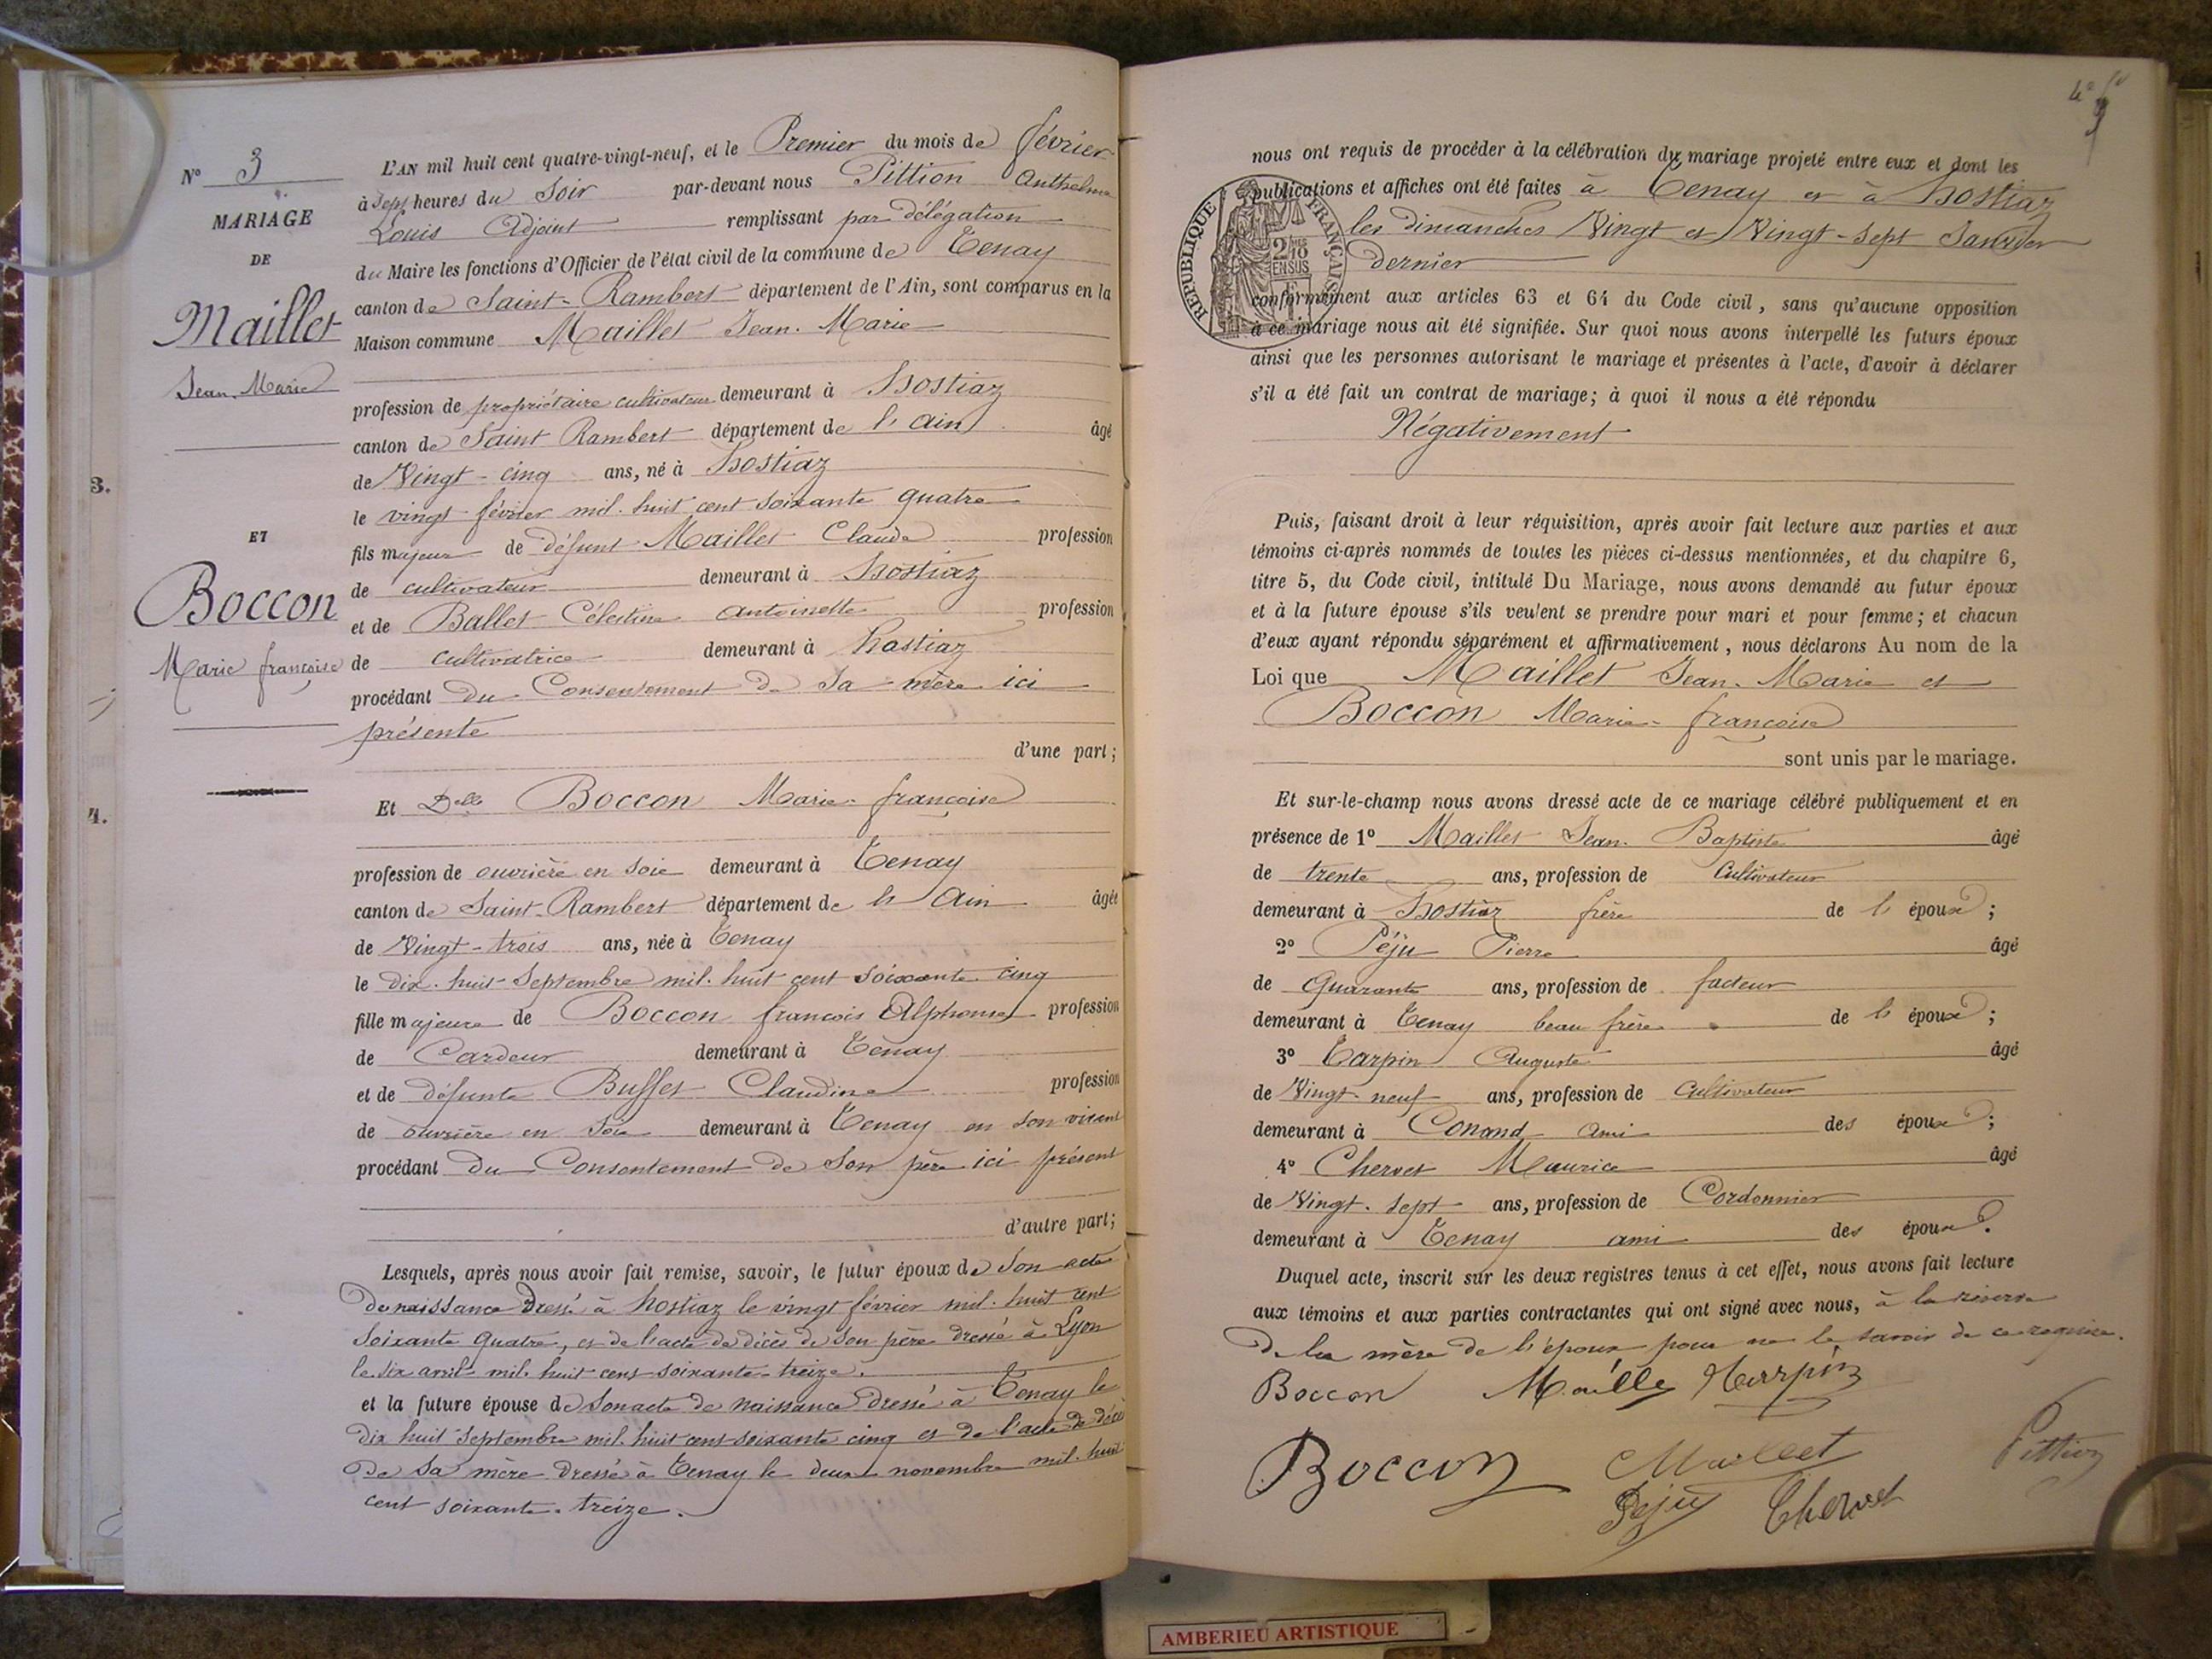 N° 3
MARIAGE
DE
Maillet
Jean Marie
3.
ET
Boccon
Marie françoise
4.
L'AN mil huit cent quatre-vingt-neuf, et le Premier du mois de février
à Sept heures du Soir par-devant nous Pittion Anthelme
Louis Adjoint remplissant par délégation
du Maire les fonctions d'Officier de l'état civil de la commune de Tenay
canton de Saint-Rambert département de l'Ain, sont comparus en la
Maison commune Maillet Jean-Marie
profession de propriétaire cultivateur demeurant à Hostiaz
canton de Saint Rambert département de l'Ain âgé
de Vingt-cinq ans, né à Hostiaz
le vingt février mil huit cent soixante quatre
fils majeur de défunt Maillet Claude profession
de cultivateur demeurant à Hostiaz
et de Ballet Célestine Antoinette profession
de cultivatrice demeurant à hostiaz
procédant du Consentement de Sa mère ici
présente
d'une part;
Et Delle Boccon Marie-françoise
profession de ouvrière en soie demeurant à Tenay
canton de Saint-Rambert département de l'Ain âgée
de Vingt-trois ans, née à Tenay
le dix-huit Septembre mil huit cent soixante cinq
fille majeure de Boccon françois Alphonse profession
de Cardeur demeurant à Tenay
et de défunte Buffet Claudine profession
de ouvrière en soie demeurant à Tenay en son vivant
procédant du Consentement de Son père ici présent
d'autre part;
Lesquels, après nous avoir fait remise, savoir, le futur époux de Son acte
de naissance Dressé à hostiaz le vingt février mil huit cent
Soixante quatre, et de l'acte de décès de Son père dressé à Lyon
le six avril mil huit cent soixante-treize.
et la future épouse de Son acte de naissance dressé à Tenay le
dix huit Septembre mil huit cent soixante cinq et de l'acte de décès
de Sa mère dressé à Tenay le deux novembre mil huit
cent soixante-treize.
4e
nous ont requis de procéder à la célébration du mariage projeté entre eux et dont les
publications et affiches ont été faites à Tenay et à Hostiaz
les dimanches Vingt et Vingt-sept Janvier
dernier
REPUBLIQUE FRANÇAISE
2/10 EN SUS
conformément aux articles 63 et 64 du Code civil, sans qu'aucune opposition
à ce mariage nous ait été signifiée. Sur quoi nous avons interpellé les futurs époux
ainsi que les personnes autorisant le mariage et présentes à l'acte, d'avoir à déclarer
s'il a été fait un contrat de mariage; à quoi il nous a été répondu
Négativement
Puis, faisant droit à leur réquisition, après avoir fait lecture aux parties et aux
témoins ci-après nommés de toutes les pièces ci-dessus mentionnées, et du chapitre 6,
titre 5, du Code civil, intitulé Du Mariage, nous avons demandé au futur époux
et à la future épouse s'ils veulent se prendre pour mari et pour femme; et chacun
d'eux ayant répondu séparément et affirmativement, nous déclarons Au nom de la
Loi que Maillet Jean-Marie et
Boccon Marie-françoise
sont unis par le mariage.
Et sur-le-champ nous avons dressé acte de ce mariage célébré publiquement et en
présence de 1° Maillet Jean-Baptiste âgé
de trente ans, profession de Cultivateur
demeurant à Hostiaz frère de l'époux;
2° Péju Pierre âgé
de Quarante ans, profession de facteur
demeurant à Tenay beau frère de l'époux;
3° Tarpin Auguste âgé
de Vingt-neuf ans, profession de Cultivateur
demeurant à Conand ami des époux;
4° Chervet Maurice âgé
de Vingt-sept ans, profession de Cordonnier
demeurant à Tenay ami des époux.
Duquel acte, inscrit sur les deux registres tenus à cet effet, nous avons fait lecture
aux témoins et aux parties contractantes qui ont signé avec nous, à la réserve
De la mère de l'époux pour ne le savoir de ce requise.
Boccon Maillet Tarpin
Boccon Maillet Pittion
Péju Chervet
AMBERIEU ARTISTIQUE